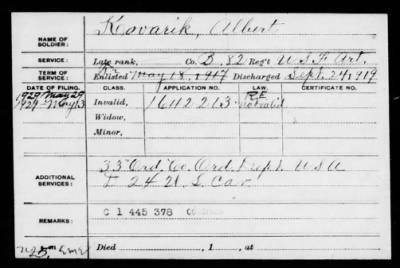 NAME OF SOLDIER: Kovarik, Albert
SERVICE: Late rank, Co. B, 82 Reg't U.S.F. Art.
TERM OF SERVICE: Enlisted May 18, 1917 Discharged Sept. 24, 1919
DATE OF FILING. CLASS. APPLICATION NO. LAW. CERTIFICATE NO.
1929 May 29 Invalid, 1642213
Widow,
Minor,
ADDITIONAL SERVICES: 33" Ord. Co. Ord. Dept. USA
24 U.S. Cav.
REMARKS: C 1 445 378
Died , 1 , at